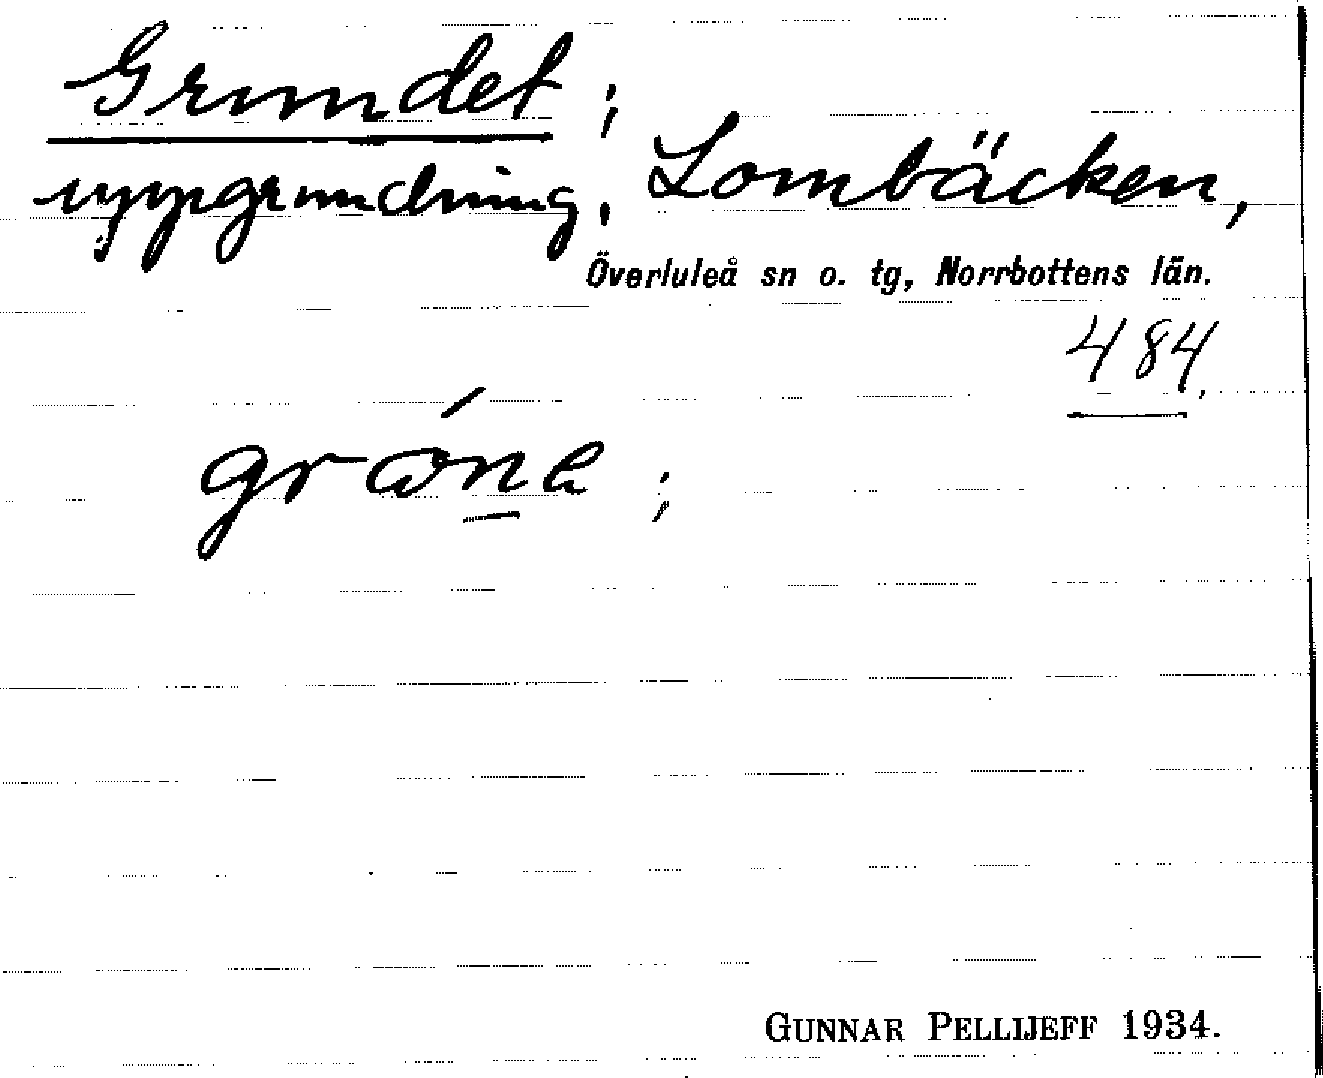 Grundet;
uppgrundning. Lombäcken,
Överluleå sn o. tg, Norrbottens län.
484.
grωńe;
GUNNAR PELLIJEFF 1934.